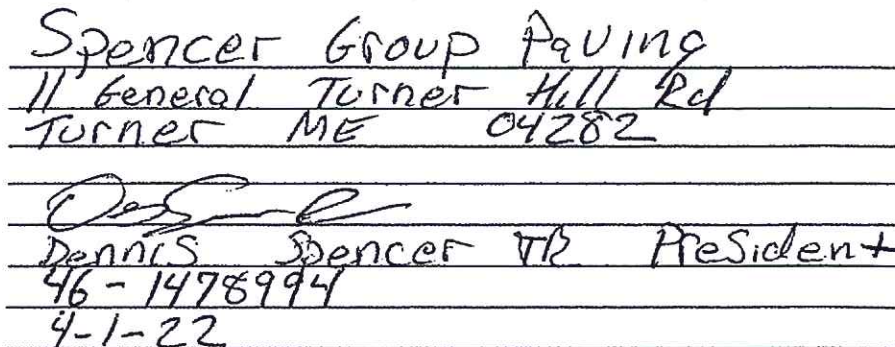 Spencer Group Paving
11 General Turner Hill Rd
Turner ME 04282
Dennis Spencer JR President
46-1478994
4-1-22